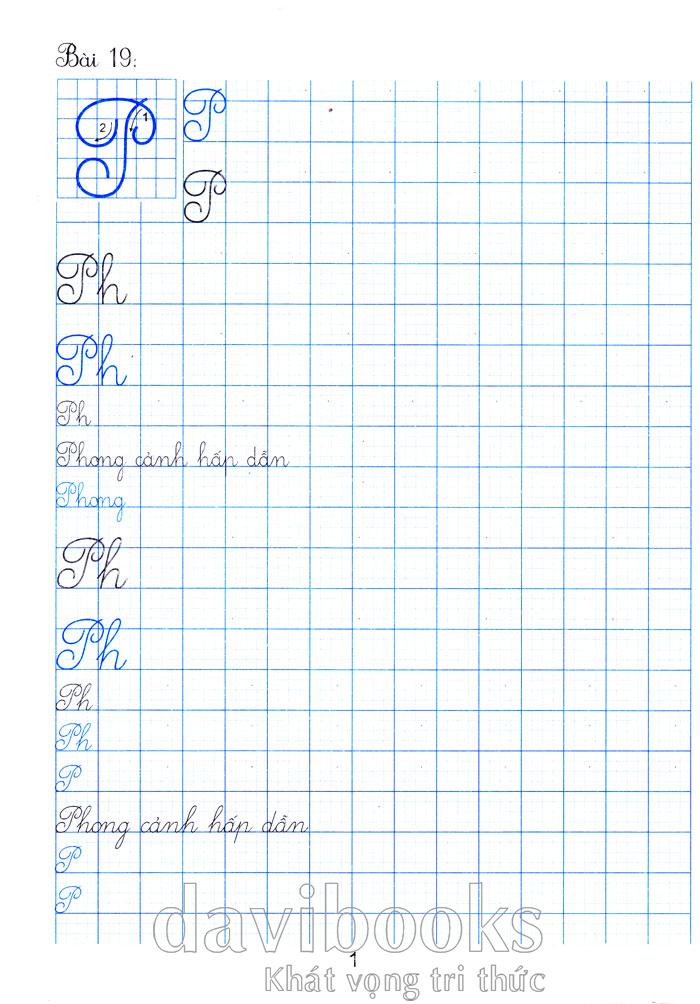 Bài 19:
1
2
P
P
P
Ph
Ph
Ph
Phong cảnh hấp dẫn
Phong
Ph
Ph
Ph
Ph
P
Phong cảnh hấp dẫn
P
P
davibooks
1
Khát vọng tri thức